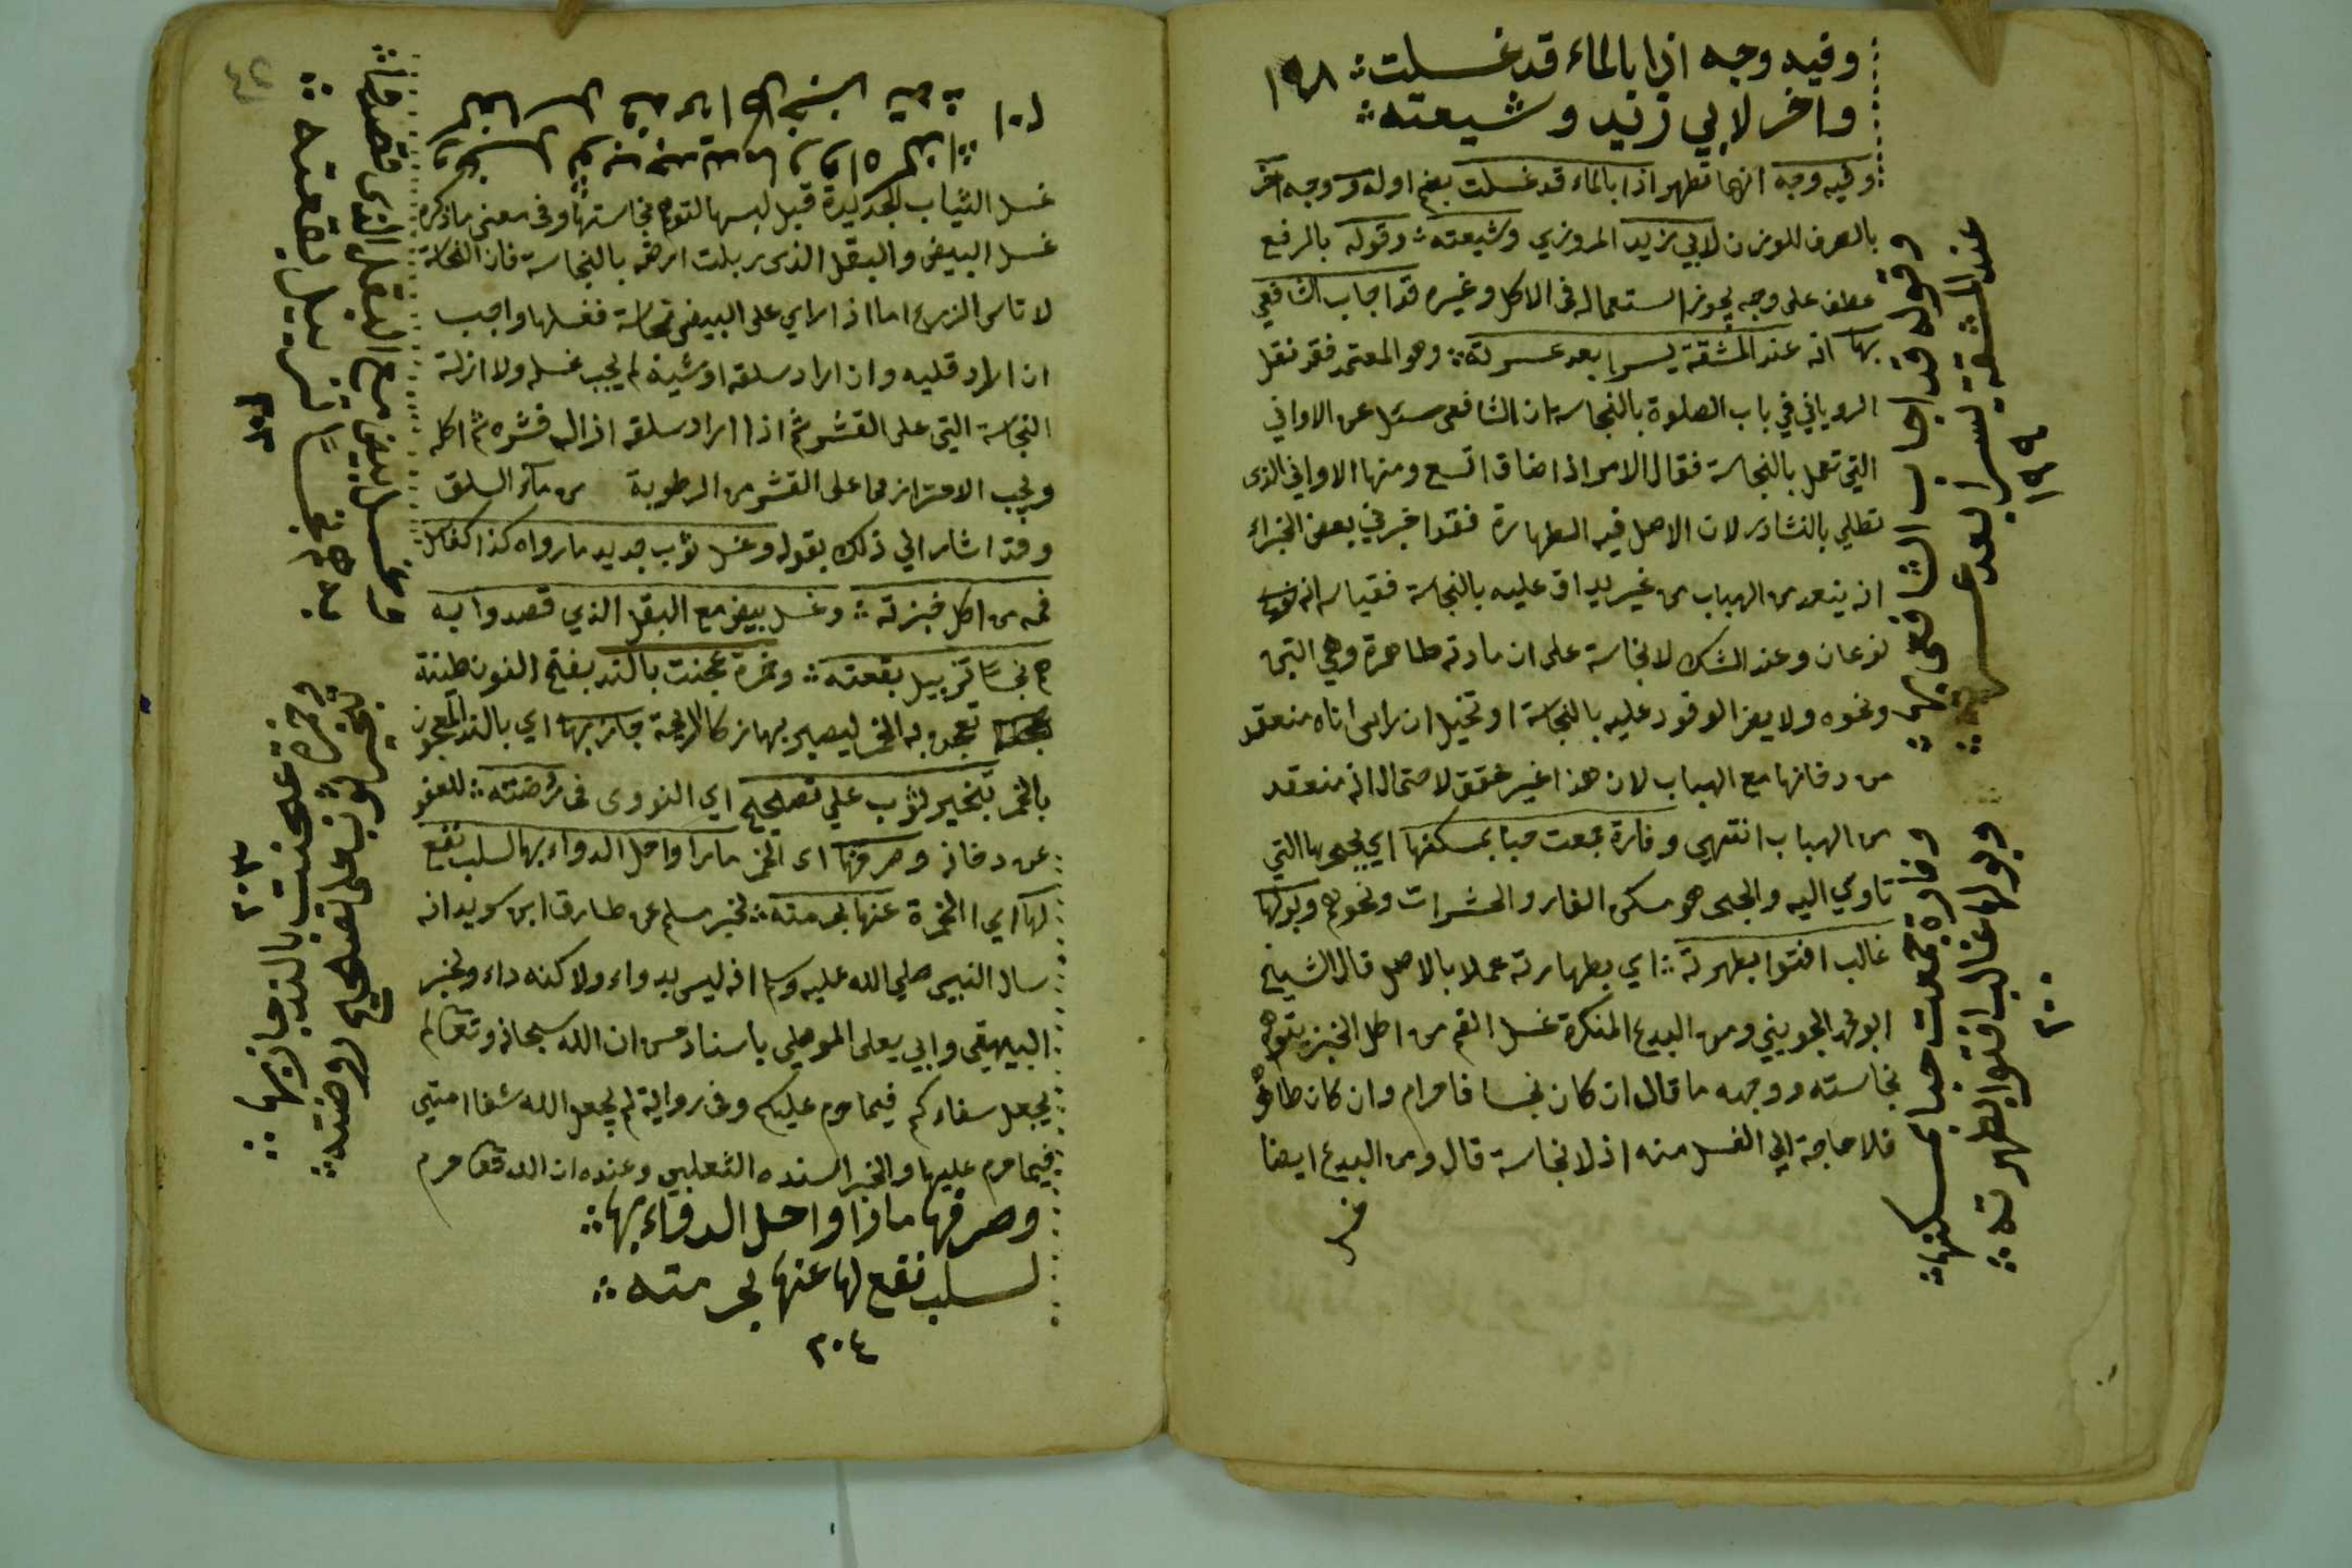 وفيه وجه اذا بالماء قد غسلت
١٩٨
واخر لابي زيد وشيعته
وفيه وجه انها تطهر اذا بالماء قد غسلت بضم اوله ووجه اخر
بالصرف للوزن لابي زيد المروزي وشيعته وقوله بالرفع
عطف على وجه يجوز استعماله في الاكل وغيره قد اجاب الشافعي
بها انه عند المشقة يسرا بعد عسرته وهو المعتمد فقد نقل
الروياني في باب الصلوة بالنجاسة ان الشافعي سئل عن الاواني
التي تعمل بالنجاسة فقال الامر اذا ضاق اتسع ومنها الاواني الذي
تطلى بالنشادر لان الاصل فيه الطهارة فقد اخبرني بعض الخبراء
انه ينعقد من الهباب من غير يداق عليه بالنجاسة فقياسه انه
نوعان وعند الشك لا نجاسة على ان مادته طاهرة وهي التبن
ونحوه ولا يضر الوقود عليه بالنجاسة او تخيل ان راس اناه منعقد
من دخانها مع الهباب لان هذا غير محقق لاحتمال انه منعقد
من الهباب انتهى وفارة جمعت حبا بمسكنها اي بجحرها التي
تاوي اليه والجحر هو مسكن الفار والحشرات ونحوهم وبولها
غالب افتوا بطهرته اي بطهارته عملا بالاصل قال الشيخ
ابو محمد الجويني ومن البدع المنكرة غسل الفم من اكل الخبز بتوهم
نجاسته ووجهه ما قال ان كان نجسا فحرام وان كان طاهرا
فلا حاجة الي الغسل منه اذ لا نجاسة قال ومن البدع ايضا
وقوله قد اجاب الشافعي بها
عند المشقة يسرا بعد عسرته
١٩٩
وفارة جمعت حبا بمسكنها
وبولها غالب افتوا بطهرته
٢٠٠
٢٠١
وغسل ثوب جديد ما رواه كذا
كغاسل فمه من اكل خبزته
غسل الثياب الجديدة قبل لبسها لتوهم نجاستها وفي معنى ما ذكره
غسل البيض والبقل الذي ربلت ارضه بالنجاسة فان النجاسة
لا تاس الزرع اما اذا راي على البيض نجاسة فغسلها واجب
ان اراد قليه وان اراد سلقه او شيه لم يجب غسله ولا ازلة
النجاسة التي على القشر ثم اذا اراد سلقه ازال قشره ثم اكله
ويجب الاحتراز مما على القشر من الرطوبة من ماء السلق
وقد اشار الي ذلك بقوله وغسل ثوب جديد ما رواه كذا كغاسل
فمه من اكل خبزته وغسل بيض مع البقل الذي قصدوا به
نجسا تزبيل بقعته وخمرة عجنت بالند بفتح النون طينة
تعجن به الخمر ليصير بها زكا الرايحة جاز بها اي بالند المعجون
بالخمر تبخير لثوب على تصحيح اي النووي في روضته للعفو
عن دخانه وصرفها اي الخمر مازا واحل الدواء بها لسلب نفع
لها اي الخمرة عنها بحرمته لخبر مسلم عن طارق ابن سويد انه
سال النبي صلي الله عليه وسلم انه ليس بدواء ولاكنه داء ولخبر
البيهقي وابي يعلى الموصلي باسناد حسن ان الله سبحانه وتعالى لم
يجعل شفاءكم فيما حرم عليكم وفي رواية لم يجعل الله شفا امتي
فيما حرم عليها والخبر اسنده الثعلبي وعنده ان الله تعالى حرم
وصرفها مازا واحل الدواء بها
لسلب نفع لها عنها بحرمته
٢٠٤
وغسل بيض مع البقل الذي قصدوا
به نجسا تزبيل بقعته
٢٠٢
وخمرة عجنت بالند جاز بها
تبخير ثوب على تصحيح روضته
٢٠٣
٤٢